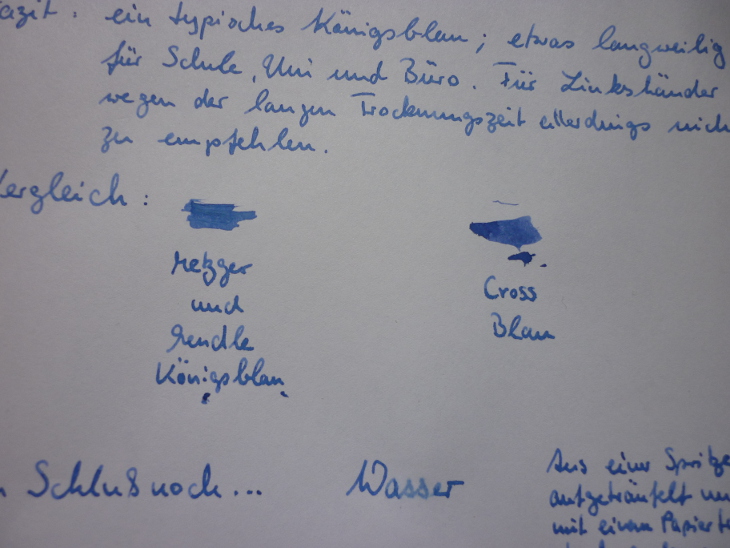 azit: ein typisches Königsblau; etwas langweilig
für Schule, Uni und Büro. Für Linkshänder
wegen der langen Trocknungszeit allerdings nich
zu empfehlen.
Vergleich:
Metzger
und
Mendle
Königsblau
Cross
Blau
Schluß noch... Wasser
Aus einer Spritze
aufgeträufelt un
mit einem Papiert